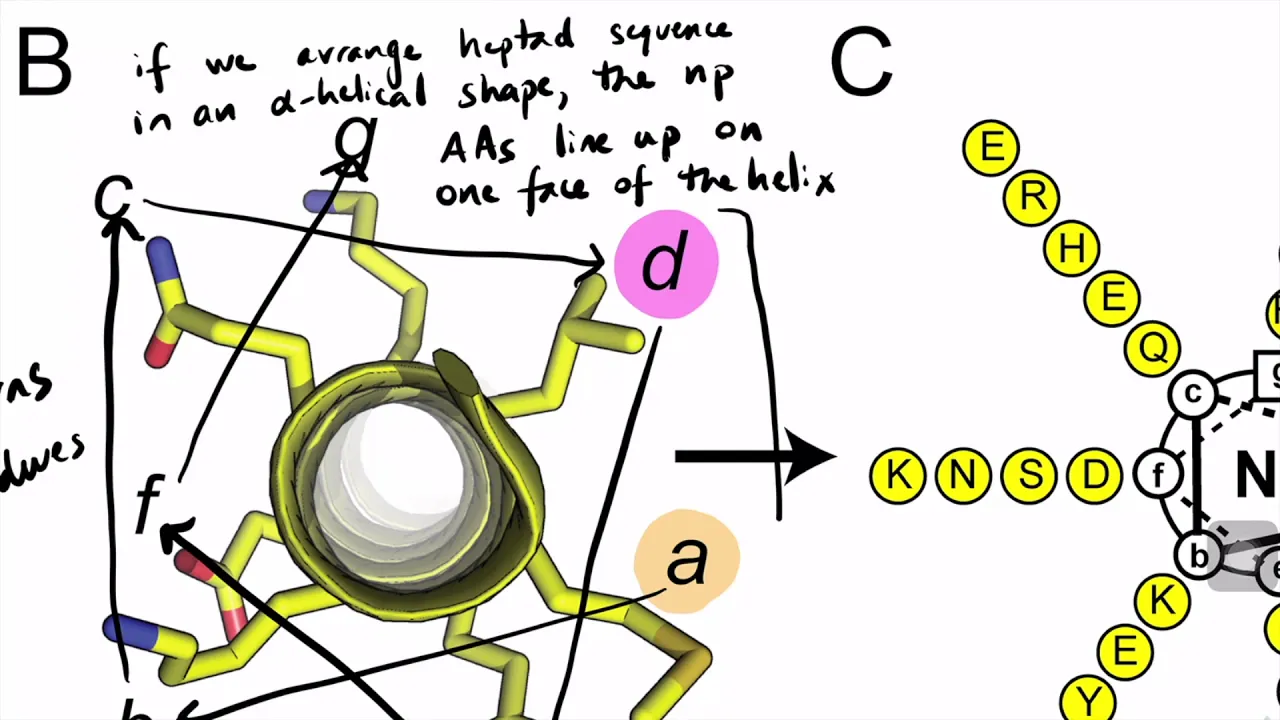 B
if we arrange heptad sequence
in an α-helical shape, the np
AAs line up on
one face of the helix
C
g
c
d
f
a
b
E
R
H
E
Q
c
g
K N S D f
N
b
e
K
E
Y